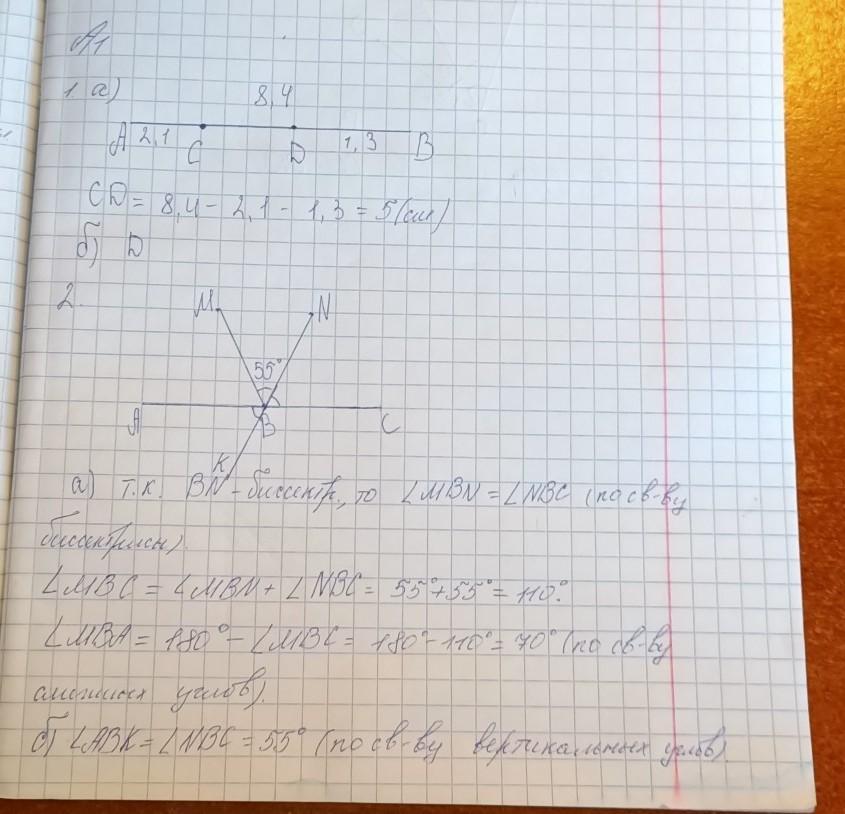 А1
1. а)
8,4
A 2,1 C D 1,3 B
CD = 8,4 - 2,1 - 1,3 = 5 (см)
б) D
2.
M N
55°
A B C
K
а) т.к. BN - биссектр., то ∠MBN = ∠NBC (по св-ву
биссектрисы).
∠MBC = ∠MBN + ∠NBC = 55° + 55° = 110°.
∠MBA = 180° - ∠MBC = 180° - 110° = 70° (по св-ву
смежных углов).
б) ∠ABK = ∠NBC = 55° (по св-ву вертикальных углов).